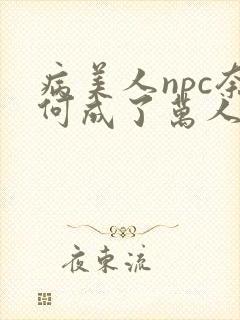 病美人npc奈
何成了萬人
夜東流